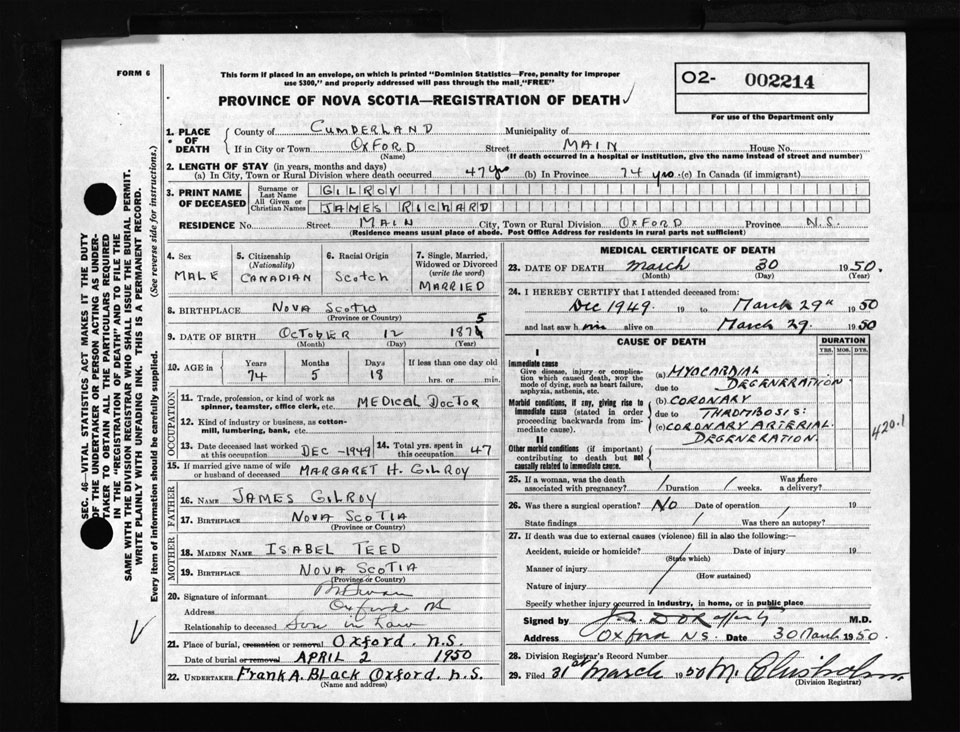 FORM 6
This form if placed in an envelope, on which is printed "Dominion Statistics—Free, penalty for improper
use $300," and properly addressed will pass through the mail "FREE"
O2- 002214
For use of the Department only
PROVINCE OF NOVA SCOTIA—REGISTRATION OF DEATH
1. PLACE OF DEATH
County of CUMBERLAND Municipality of
If in City or Town OXFORD Street MAIN House No.
(Name) (If death occurred in a hospital or institution, give the name instead of street and number)
2. LENGTH OF STAY (in years, months and days)
(a) In City, Town or Rural Division where death occurred 47 yrs (b) In Province 74 yrs. (c) In Canada (if immigrant)
3. PRINT NAME OF DECEASED
Surname or Last Name GILROY
All Given or Christian Names JAMES RICHARD
RESIDENCE No. Street MAIN City, Town or Rural Division OXFORD Province N.S.
(Residence means usual place of abode. Post Office Address for residents in rural parts not sufficient)
SEC. 46—VITAL STATISTICS ACT MAKES IT THE DUTY
OF THE UNDERTAKER OR PERSON ACTING AS UNDER-
TAKER TO OBTAIN ALL THE PARTICULARS REQUIRED
IN THE "REGISTRATION OF DEATH" AND TO FILE THE
SAME WITH THE DIVISION REGISTRAR WHO SHALL ISSUE THE BURIAL PERMIT.
WRITE PLAINLY WITH UNFADING INK. THIS IS A PERMANENT RECORD.
Every item of information should be carefully supplied. (See reverse side for instructions.)
4. Sex MALE
5. Citizenship (Nationality) CANADIAN
6. Racial Origin Scotch
7. Single, Married, Widowed or Divorced (write the word) MARRIED
8. BIRTHPLACE NOVA SCOTIA
(Province or Country)
9. DATE OF BIRTH OCTOBER 12 1875
(Month) (Day) (Year)
10. AGE in Years Months Days If less than one day old
74 5 18 hrs. or min.
OCCUPATION
11. Trade, profession or kind of work as
spinner, teamster, office clerk, etc. MEDICAL DOCTOR
12. Kind of industry or business, as cotton-
mill, lumbering, bank, etc.
13. Date deceased last worked at this occupation DEC - 1949
14. Total yrs. spent in this occupation 47
15. If married give name of wife
or husband of deceased MARGARET H. GILROY
FATHER
16. NAME JAMES GILROY
17. BIRTHPLACE NOVA SCOTIA
(Province or Country)
MOTHER
18. MAIDEN NAME ISABEL TEED
19. BIRTHPLACE NOVA SCOTIA
(Province or Country)
20. Signature of informant
Address Oxford
Relationship to deceased Son in Law
21. Place of burial, cremation or removal Oxford. N.S.
Date of burial or removal APRIL 2 1950
22. UNDERTAKER Frank A. Black Oxford. N.S.
(Name and address)
MEDICAL CERTIFICATE OF DEATH
23. DATE OF DEATH March 30 1950.
(Month) (Day) (Year)
24. I HEREBY CERTIFY that I attended deceased from:
Dec 1949. 19 to March 29th 1950
and last saw him alive on March 29. 1950
CAUSE OF DEATH
DURATION
YRS. MOS. DYS.
I
Immediate cause
Give disease, injury or complica-
tion which caused death, NOT the
mode of dying, such as heart failure,
asphyxia, asthenia, etc.
(a) MYOCARDIAL
due to DEGENERATION
Morbid conditions, if any, giving rise to
immediate cause (stated in order
proceeding backwards from im-
mediate cause).
(b) CORONARY
due to THROMBOSIS:
(c) CORONARY ARTERIAL
DEGENERATION.
420.1
II
Other morbid conditions (if important)
contributing to death but not
causally related to immediate cause.
25. If a woman, was the death
associated with pregnancy? Duration weeks. Was there
a delivery?
26. Was there a surgical operation? No Date of operation 19
State findings Was there an autopsy?
27. If death was due to external causes (violence) fill in also the following:—
Accident, suicide or homicide? Date of injury 19
(State which)
Manner of injury
(How sustained)
Nature of injury
Specify whether injury occurred in industry, in home, or in public place
Signed by M.D.
Address Oxford NS. Date 30 March 1950.
28. Division Registrar's Record Number
29. Filed 31st March 1950 M. Chisholm
(Division Registrar)